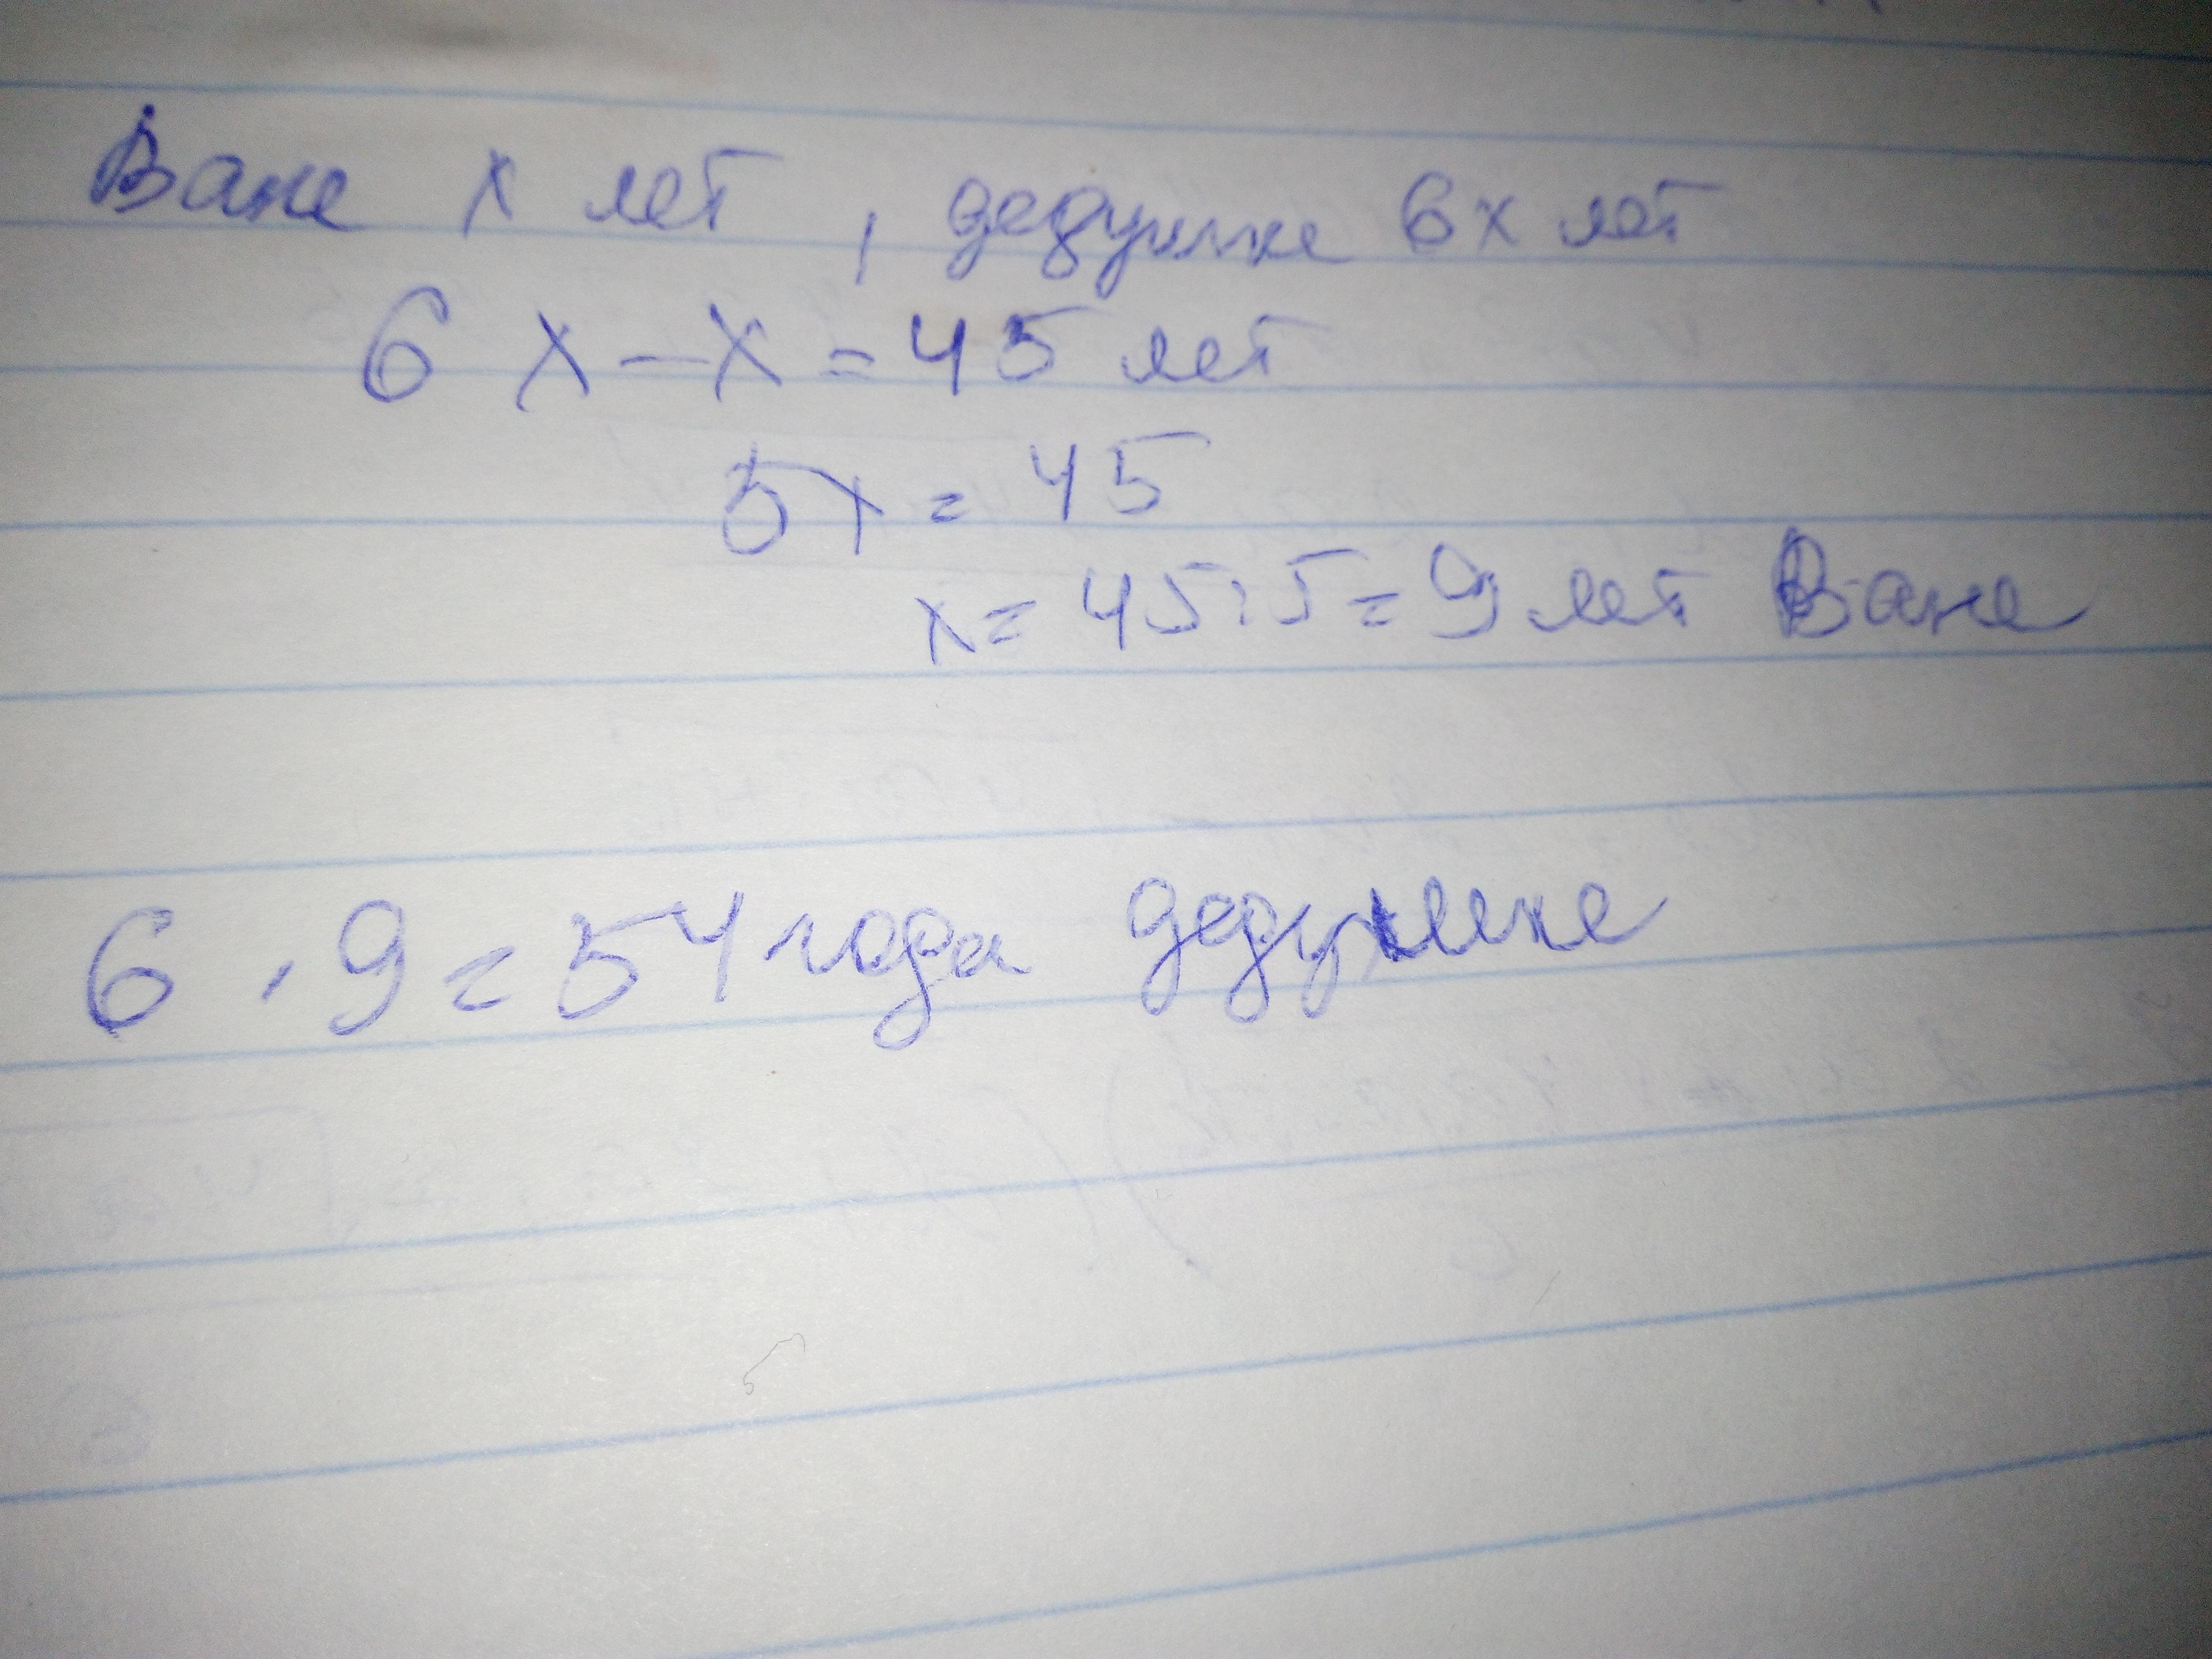 Ване x лет, дедушке 6x лет
6x - x = 45 лет
5x = 45
x = 45:5 = 9 лет Ване
6 · 9 = 54 года дедушке